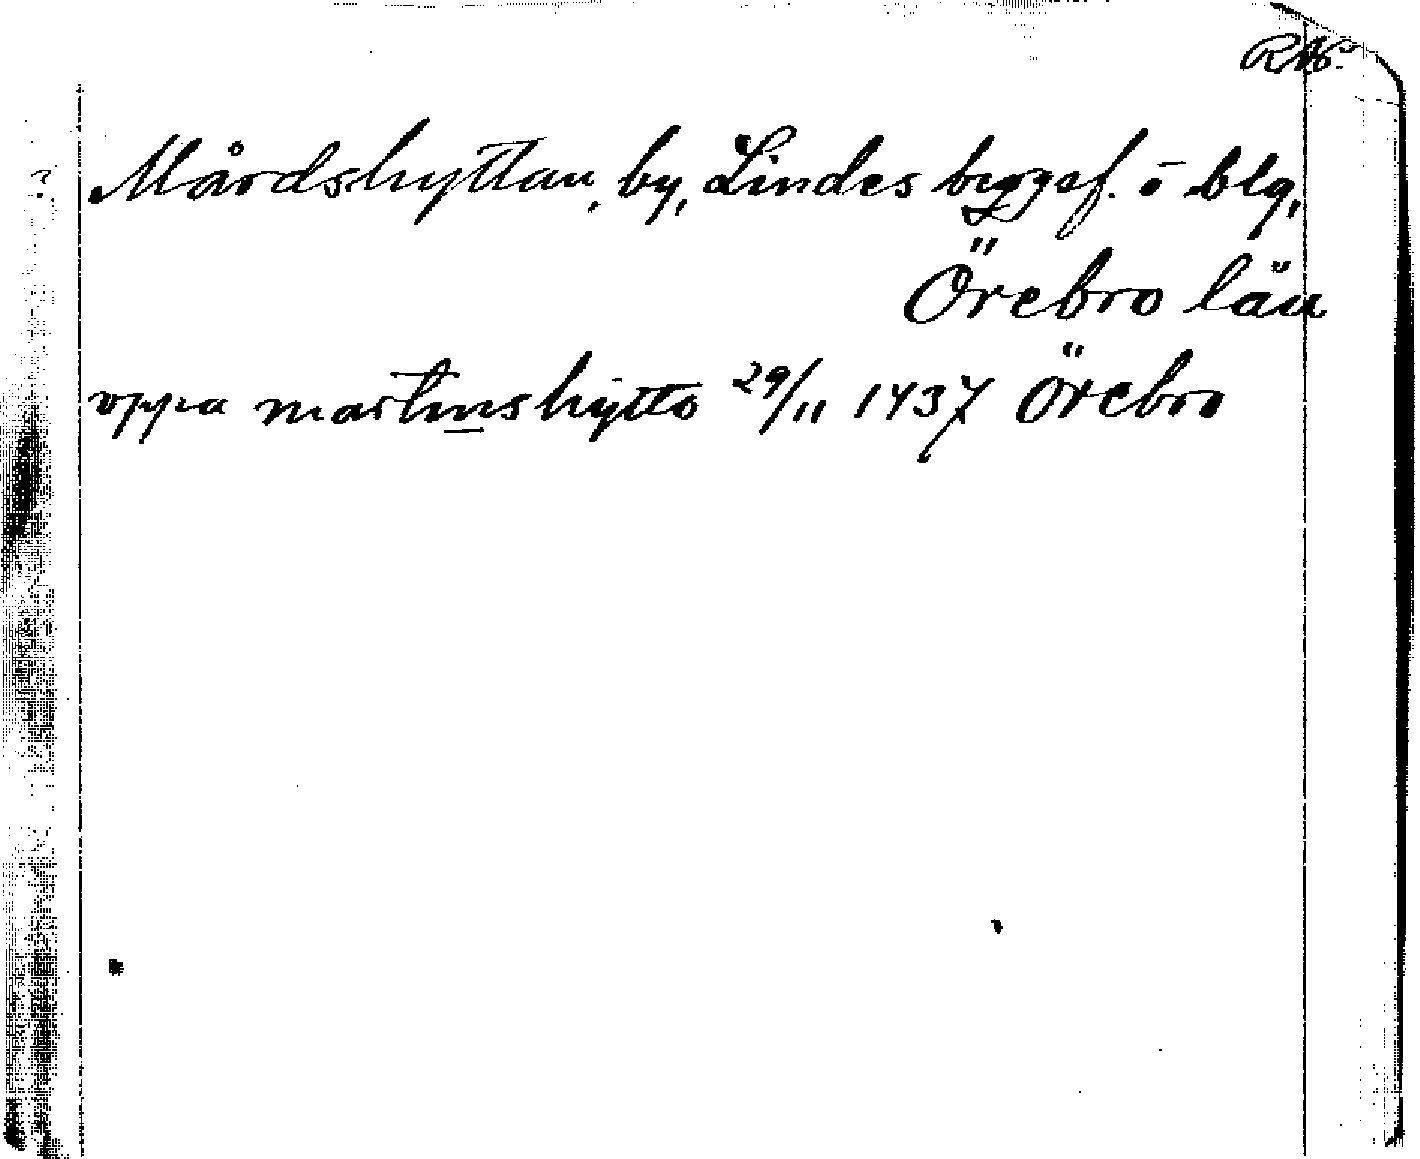 RAp.
Mårdshyttan, by, Lindes bergsf. o blg,
Örebro län
oppa martinshytto 29/11 1437 Örebro